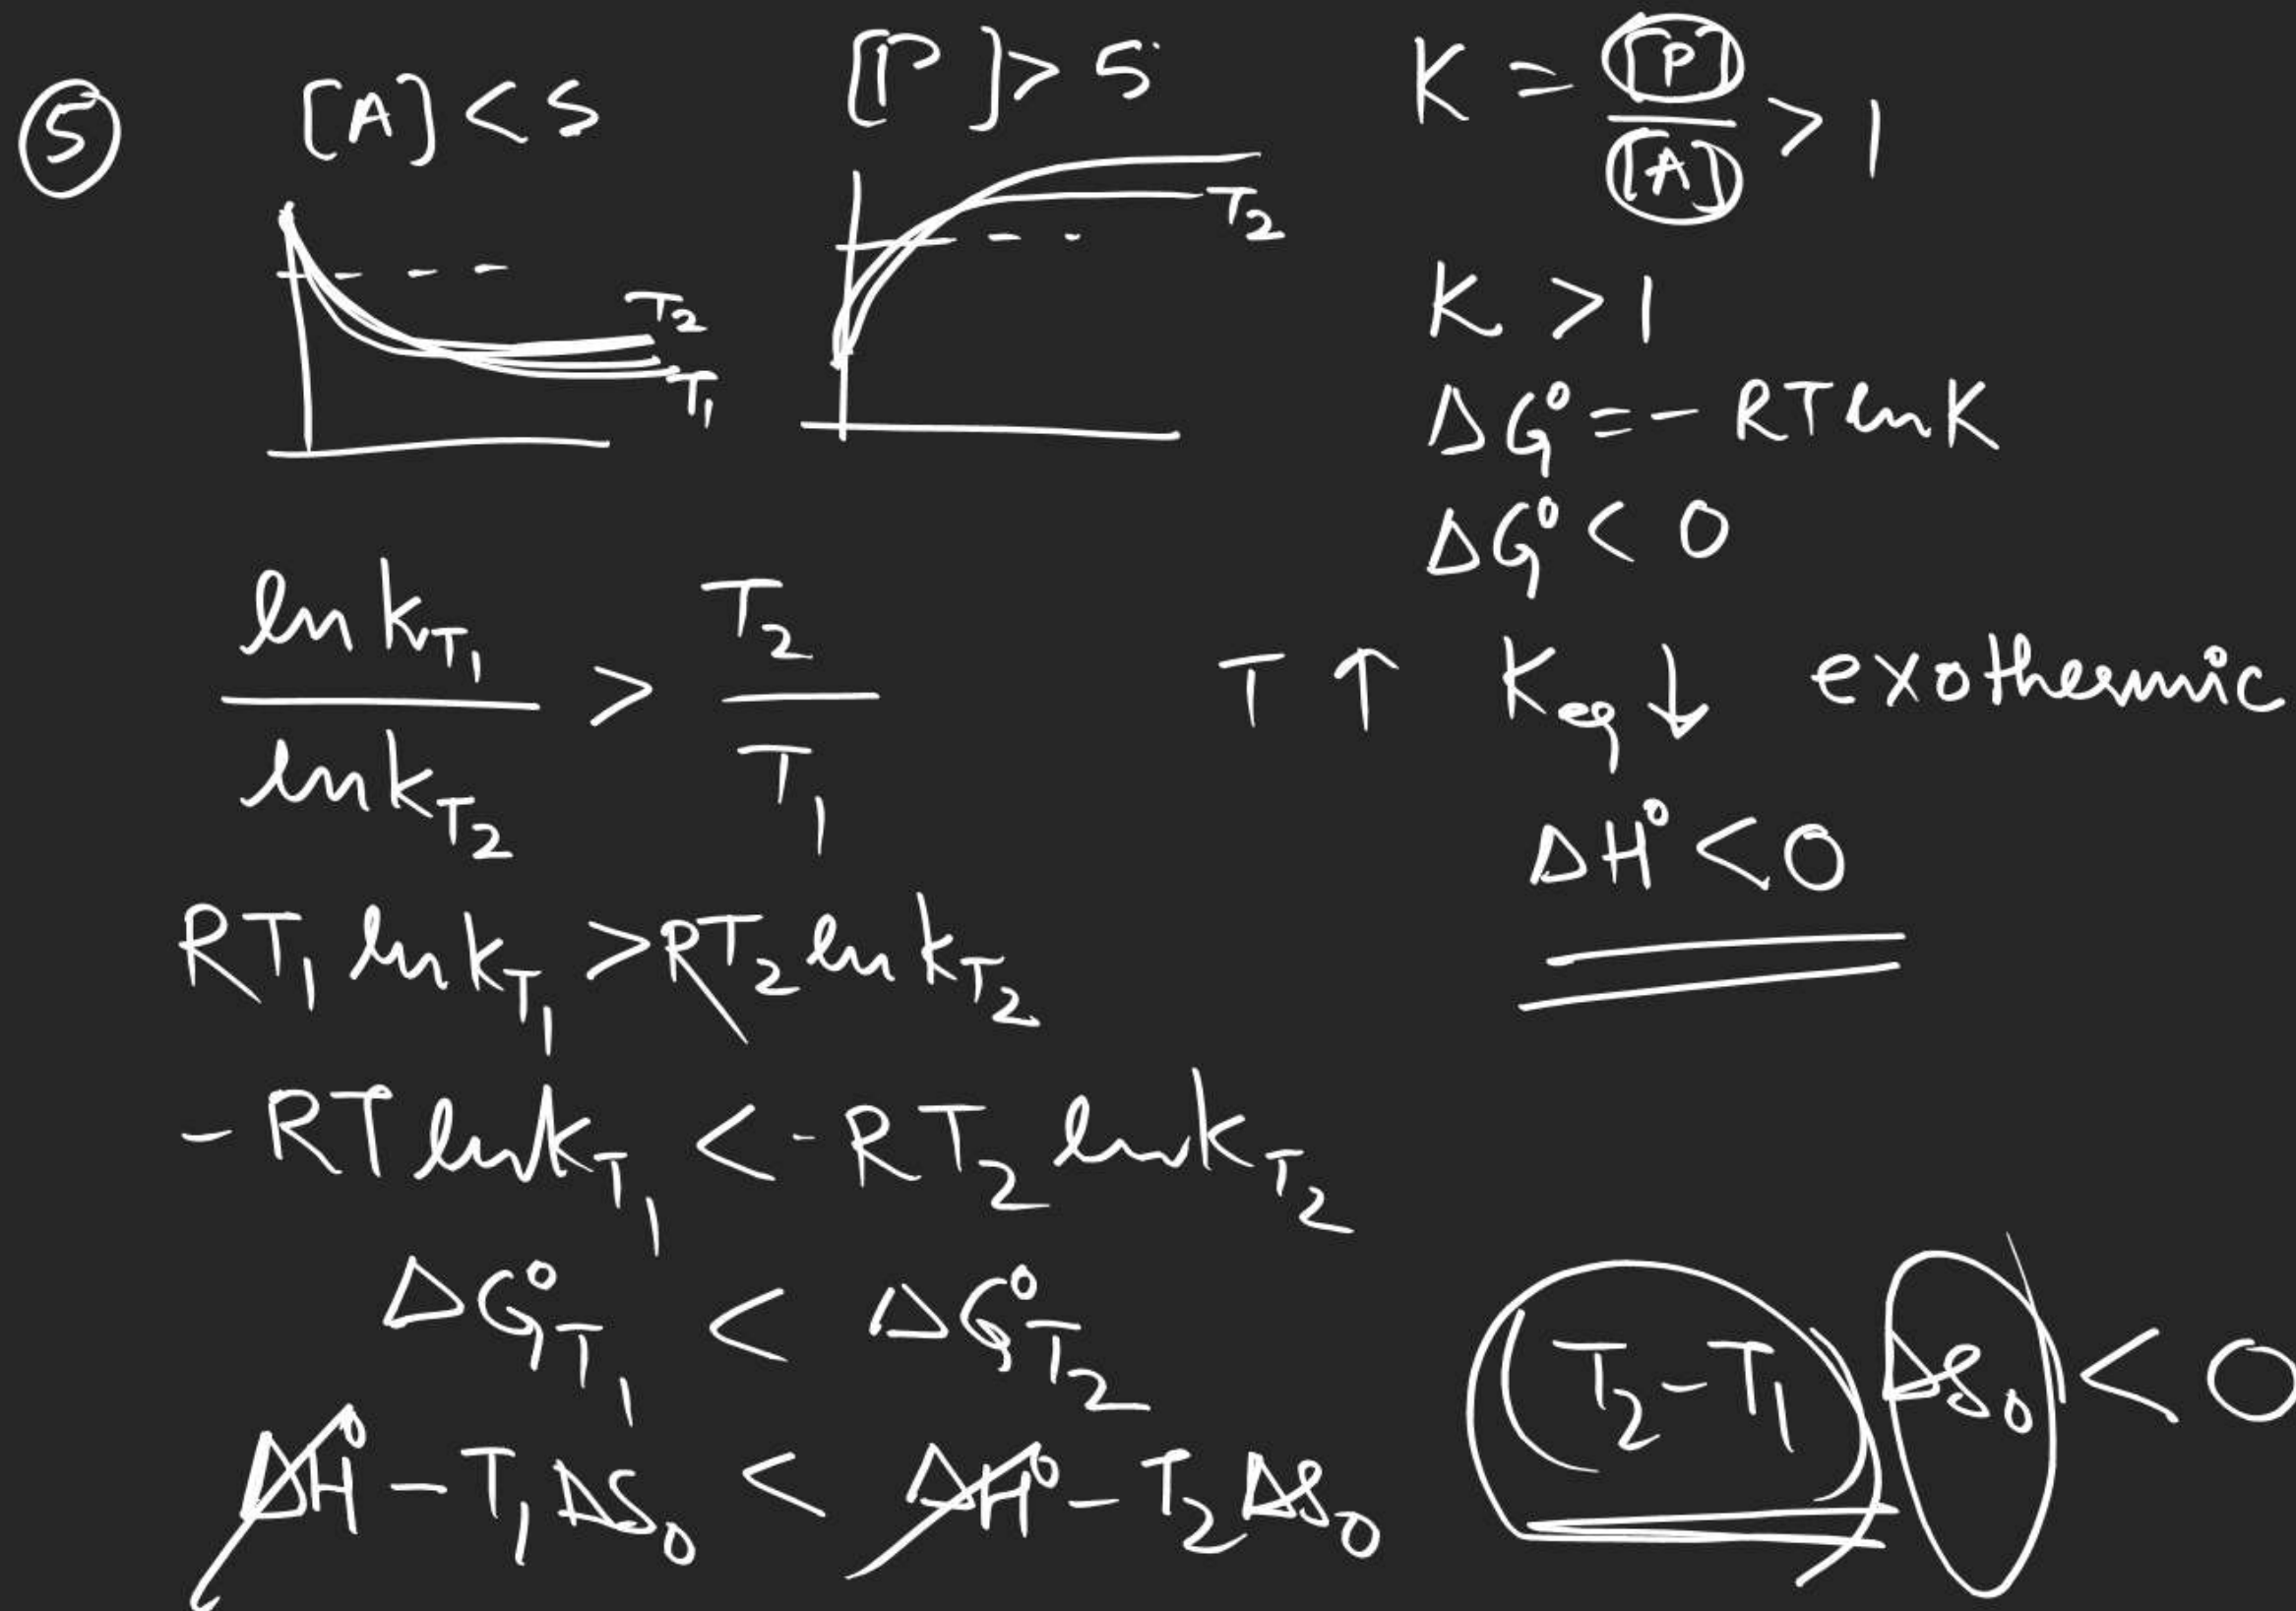 ⑤ [A] < 5 [P] > 5 K = [P] / [A] > 1
T₂
T₂
T₁
K > 1
ΔG° = - RT ln K
ΔG° < 0
ln k_T₁ / ln k_T₂ > T₂ / T₁
T ↑ K_eq ↓ exothermic
ΔH° < 0
RT₁ ln k_T₁ > RT₂ ln k_T₂
- RT ln k_T₁ < - RT₂ ln k_T₂
ΔG°_T₁ < ΔG°_T₂
(T₂ - T₁) ΔS₀ < 0
ΔH° - T₁ ΔS₀ < ΔH° - T₂ ΔS₀